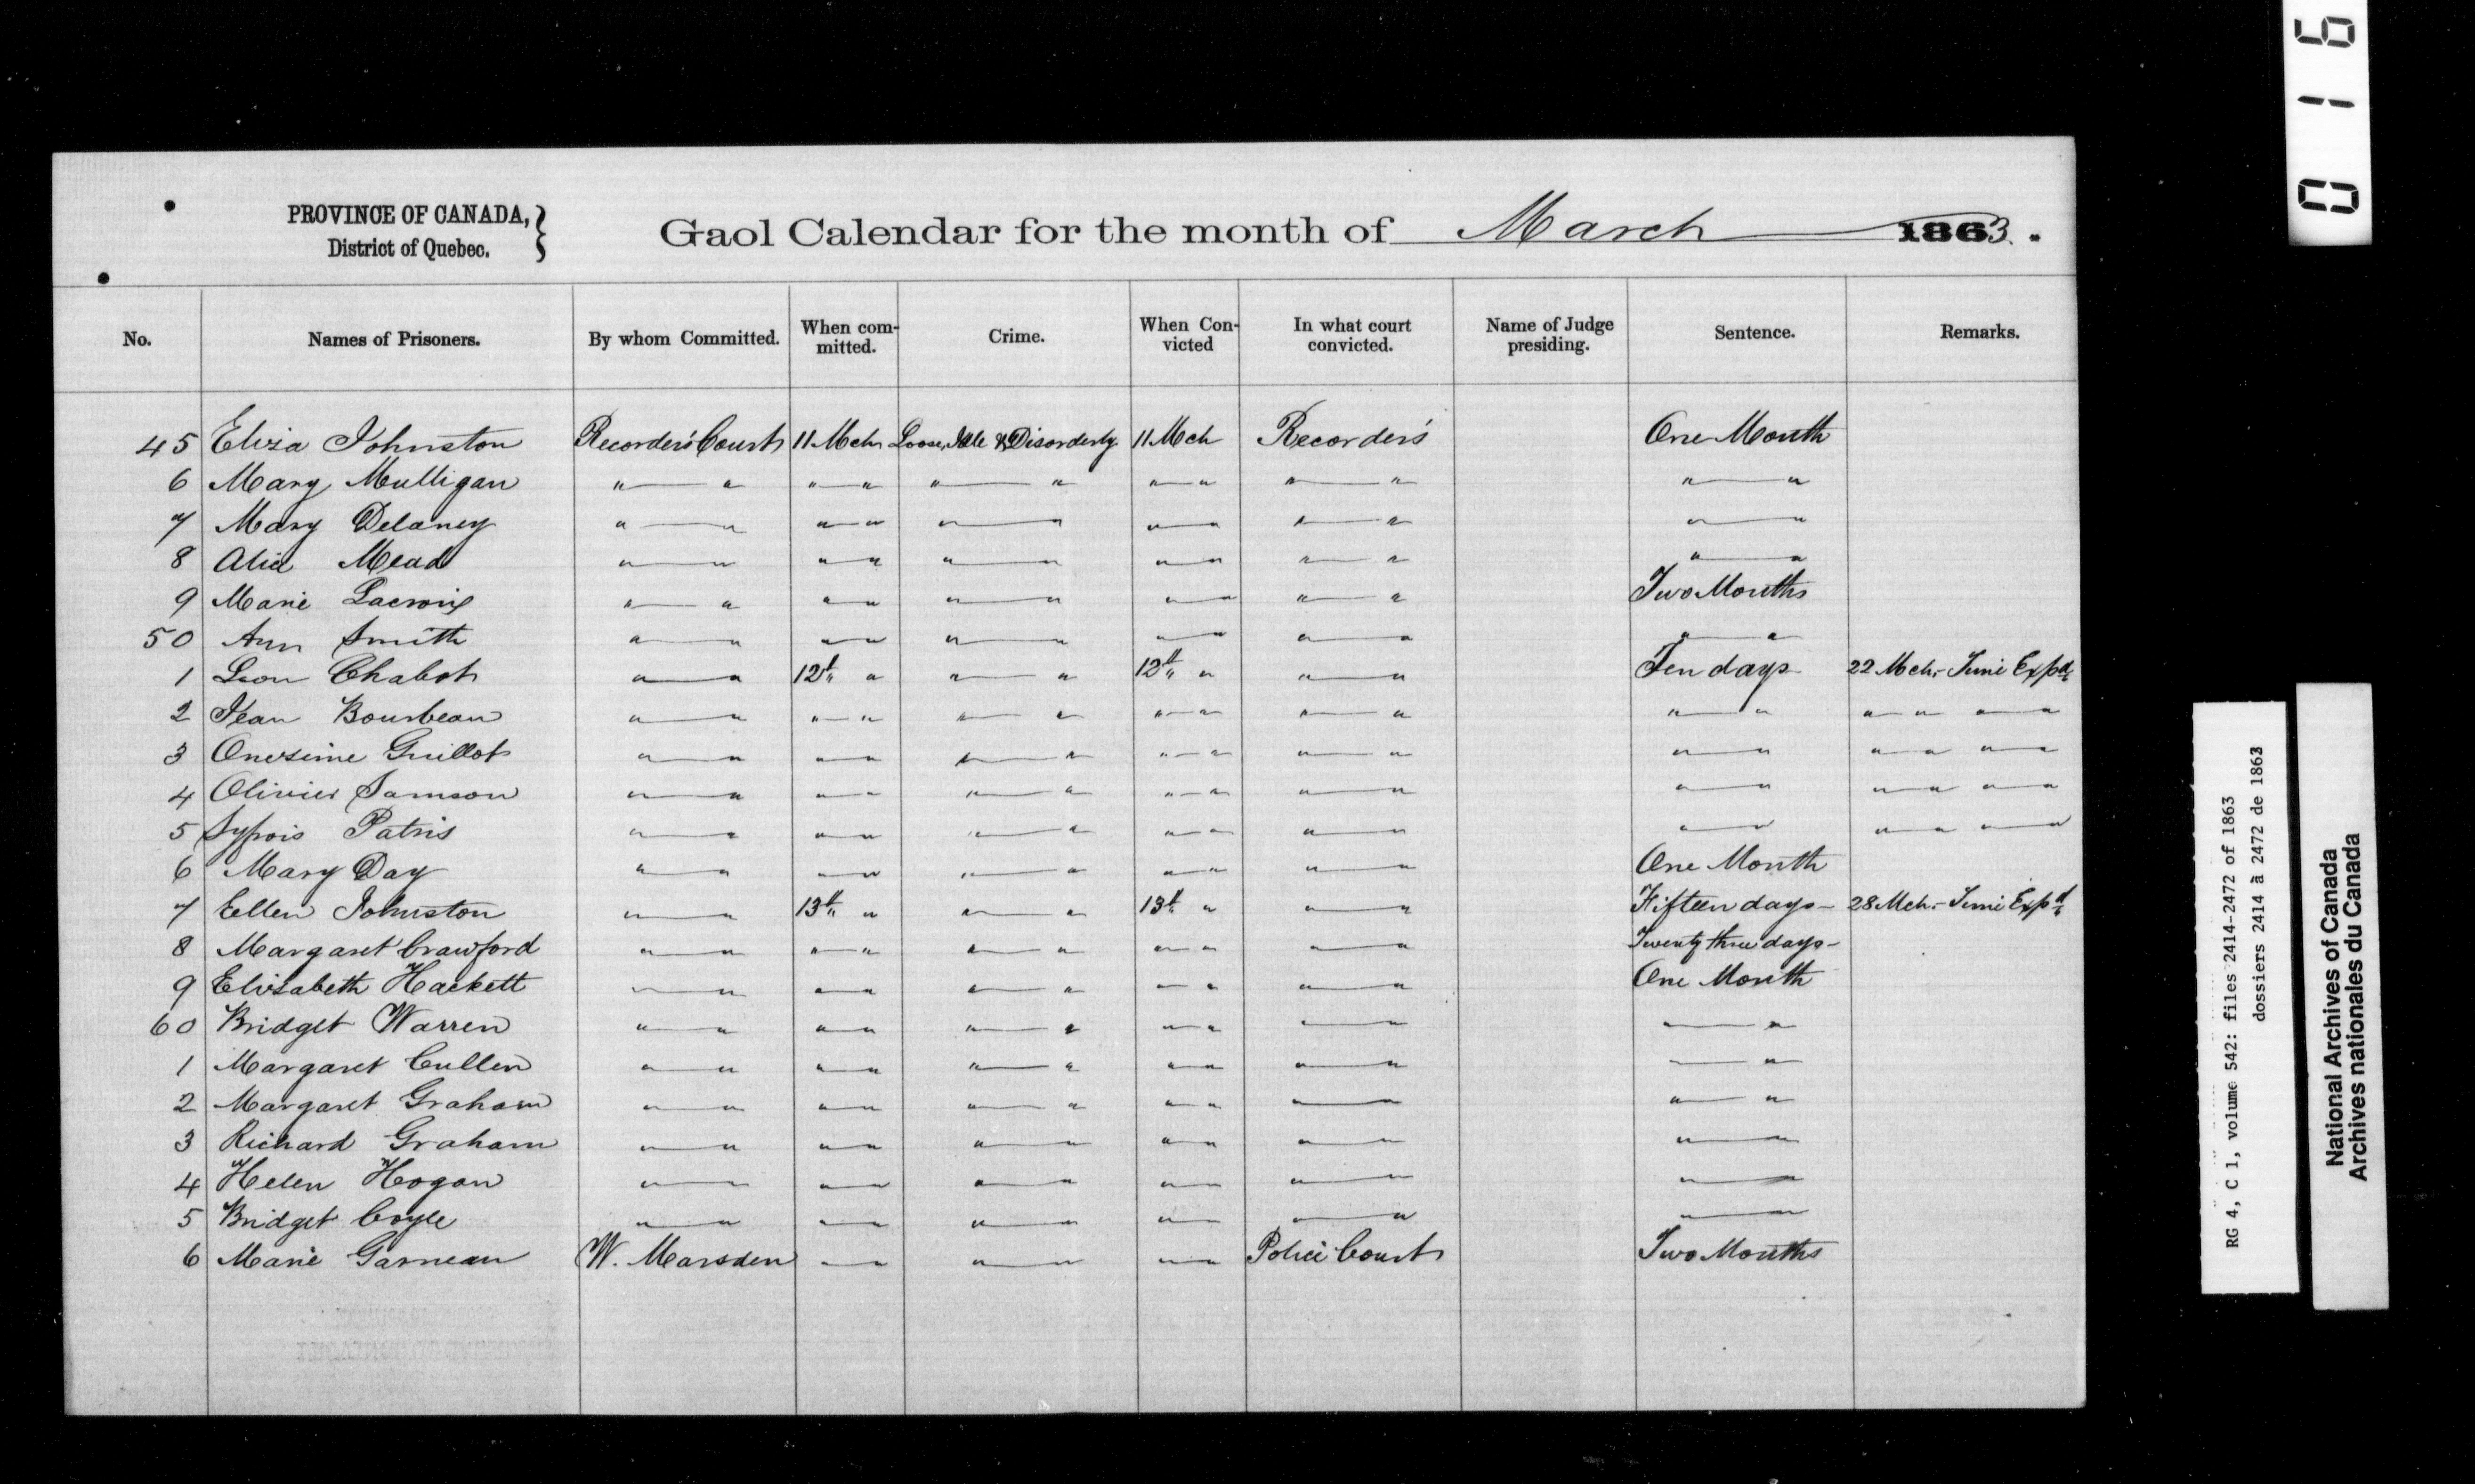 PROVINCE OF CANADA,
District of Quebec.
Gaol Calendar for the month of March 1863.
No. Names of Prisoners. By whom Committed. When committed. Crime. When Convicted In what court convicted. Name of Judge presiding. Sentence. Remarks.
45 Eliza Johnston Recorder's Court 11 Mch Loose, Idle & Disorderly 11 Mch Recorder's One Month
6 Mary Mulligan " " " " " " " " " " " "
7 Mary Delaney " " " " " " " " " " " "
8 Alice Mead " " " " " " " " " " " "
9 Marie Lacroix " " " " " " " " " " Two Months
50 Ann Smith " " " " " " " " " " " "
1 Leon Chabot " " 12th " " " 12th " " " Ten days 22 Mch - Time Expd
2 Jean Bourbeau " " " " " " " " " " " " " " " "
3 Onesime Guillot " " " " " " " " " " " " " " " "
4 Olivier Samson " " " " " " " " " " " " " " " "
5 Patris " " " " " " " " " " " " " " " "
6 Mary Day " " " " " " " " " " One Month
7 Ellen Johnston " " 13th " " " 13th " " " Fifteen days - 28 Mch - Time Expd
8 Margaret Crawford " " " " " " " " " " Twenty three days -
9 Elizabeth Hackett " " " " " " " " " " One Month
60 Bridget Warren " " " " " " " " " " " "
1 Margaret Cullen " " " " " " " " " " " "
2 Margaret Graham " " " " " " " " " " " "
3 Richard Graham " " " " " " " " " " " "
4 Helen Hogan " " " " " " " " " " " "
5 Bridget Coyle " " " " " " " " " " " "
6 Marie Garneau W. Marsden " " " " " " Police Court Two Months
016
RG 4, C 1, volume 542: files 2414-2472 of 1863
dossiers 2414 à 2472 de 1863
National Archives of Canada
Archives nationales du Canada